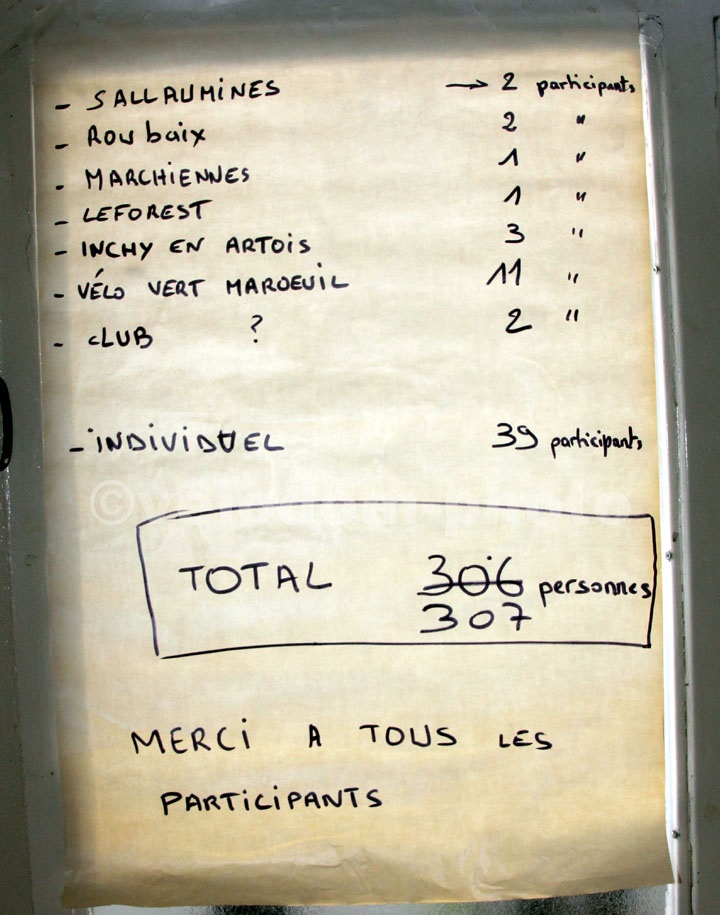 - SALLAUMINES → 2 participants
- Roubaix 2 "
- MARCHIENNES 1 "
- LEFOREST 1 "
- INCHY EN ARTOIS 3 "
- VÉLO VERT MAROEUIL 11 "
- CLUB ? 2 "
- INDIVIDUEL 39 participants
TOTAL 306 personnes
307
MERCI A TOUS LES
PARTICIPANTS